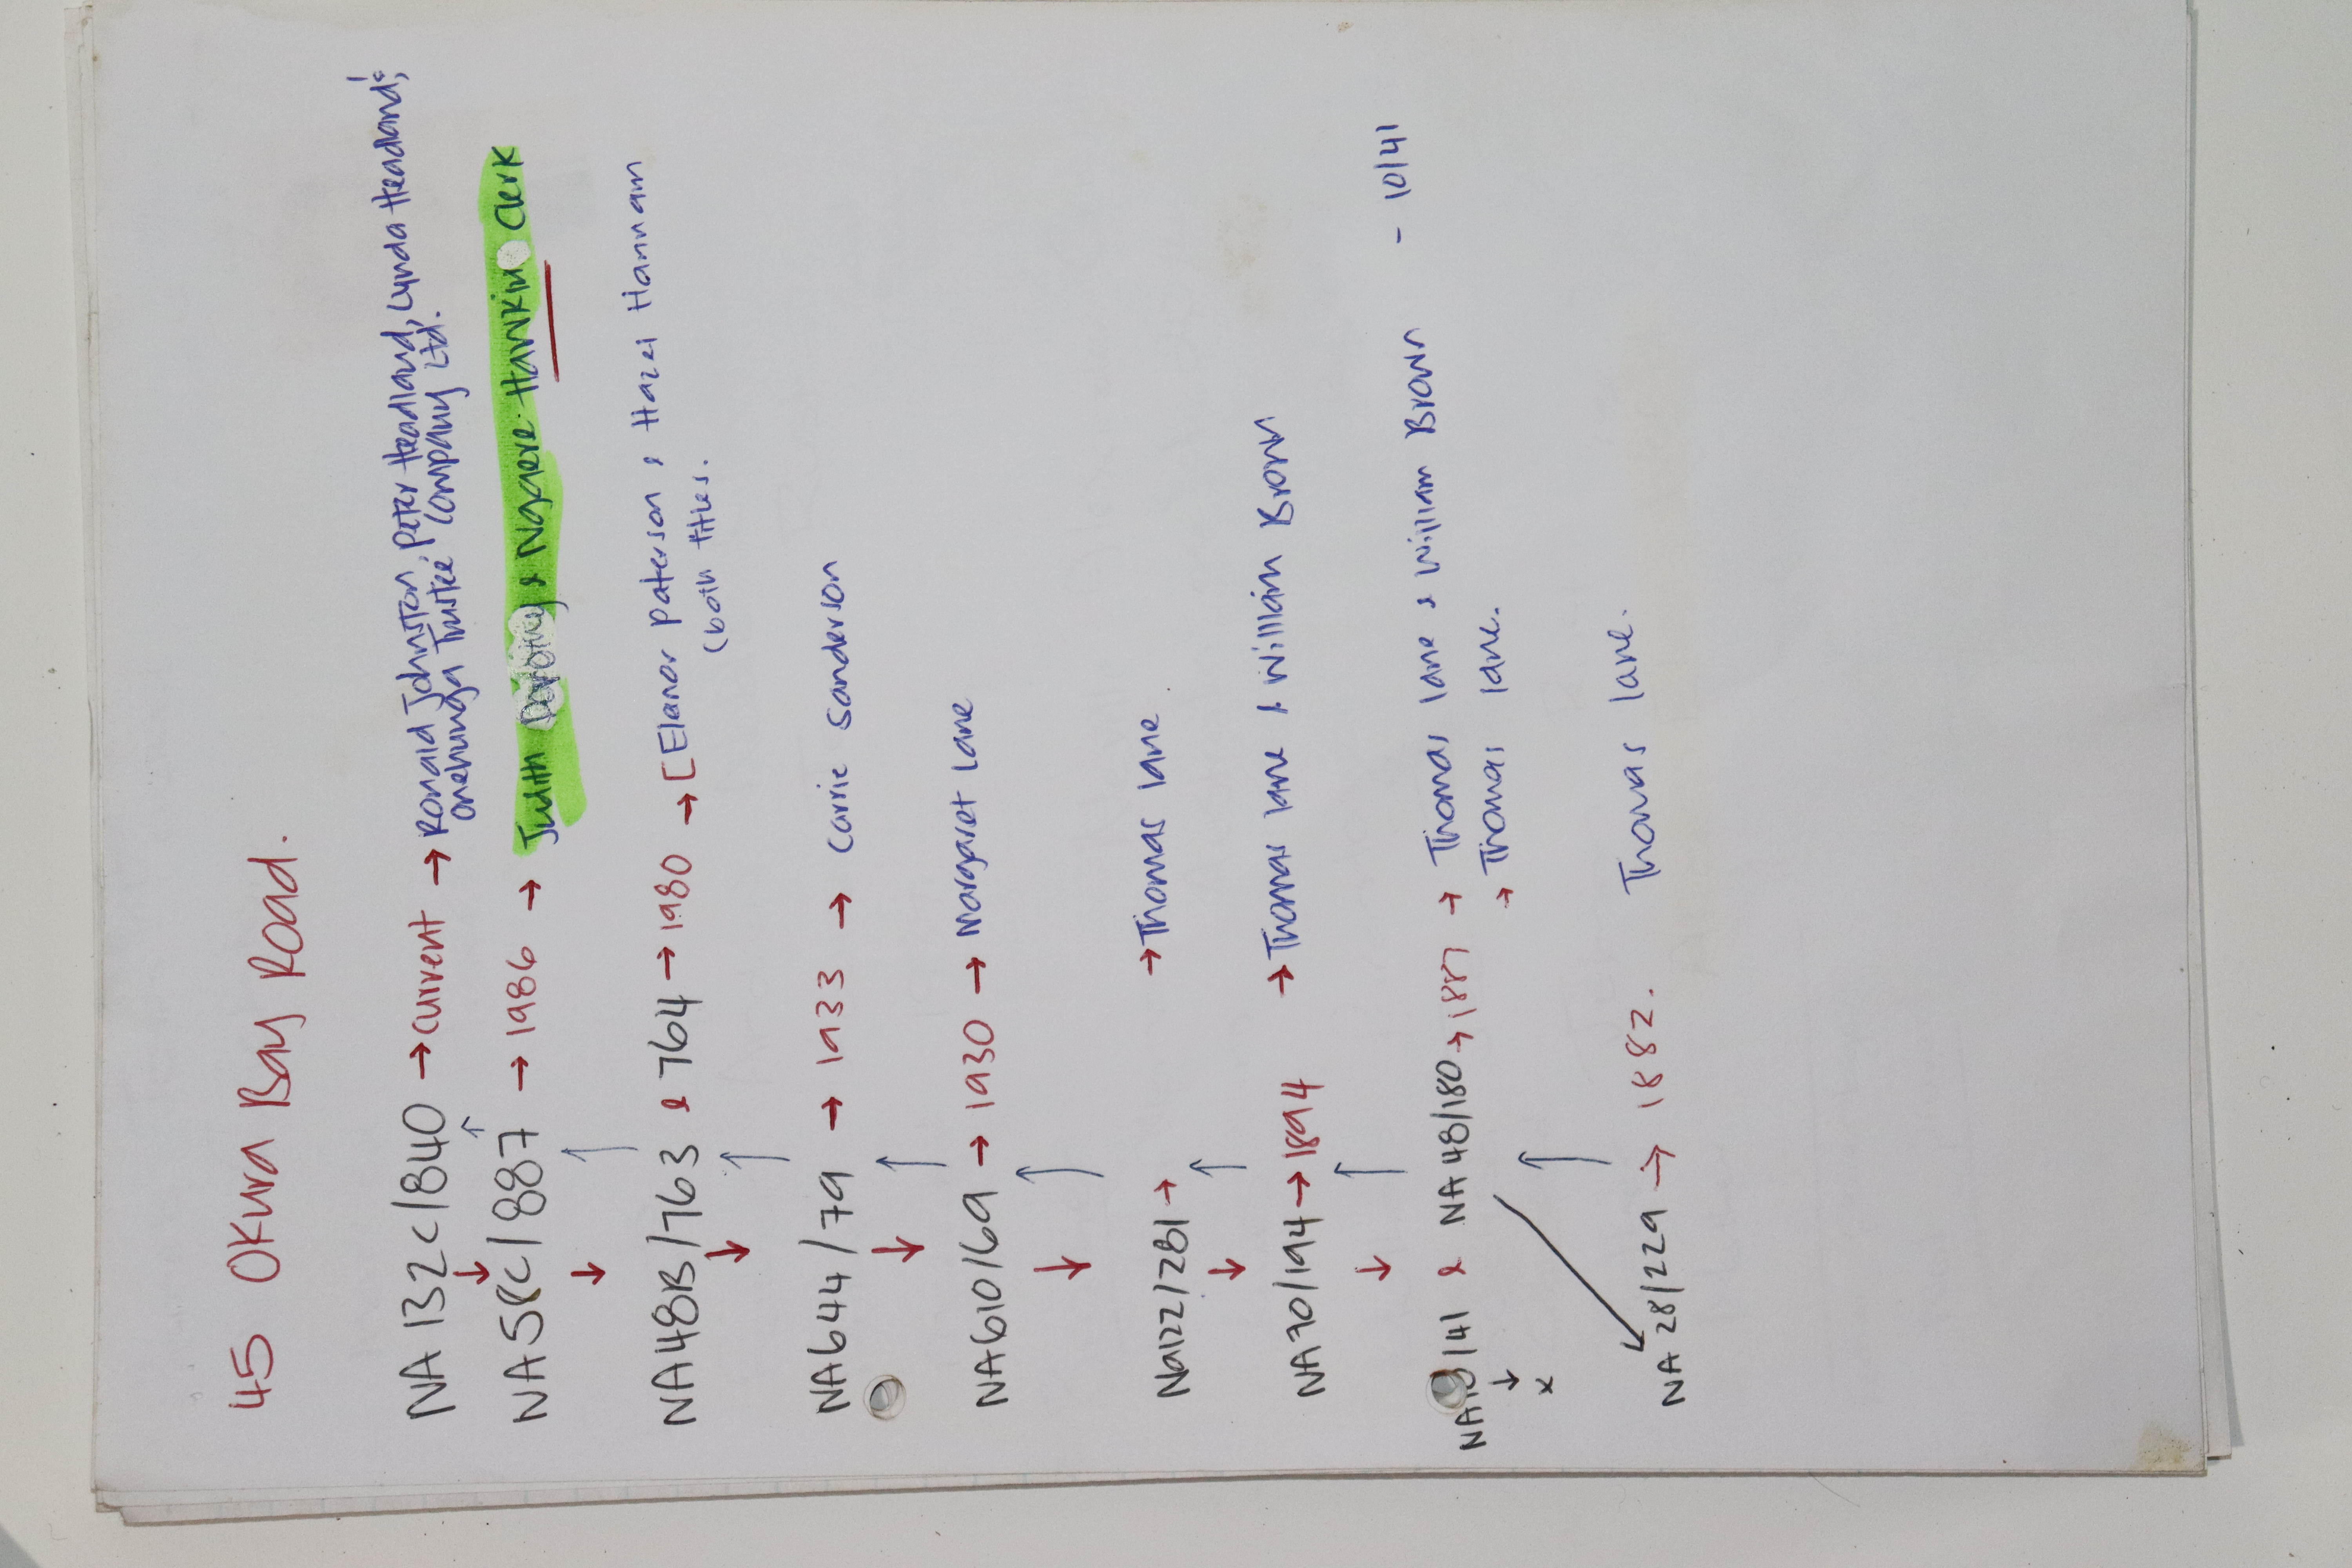 45 Okura Bay Road.
NA 132C/840 → current → Ronald Johnston, Peter Headland, Lynda Headland,
Onehunga Trustee Company Ltd.
NA58C/887 → 1986 → Judith & Ngaere Hawkins Clerk
NA48B/763 & 764 → 1980 → [Elanor Paterson & Hazel Hannam
(both titles.
NA644/79 → 1933 → Carrie Sanderson
NA610/69 → 1930 → Margaret Lane
Na122/281 → → Thomas lane
NA70/194 → 1894 → Thomas lane & William Brown
& NA 48/180 → 1887 → Thomas lane & William Brown - 10/41
→ Thomas lane.
x
NA 28/229 → 1882. Thomas lane.